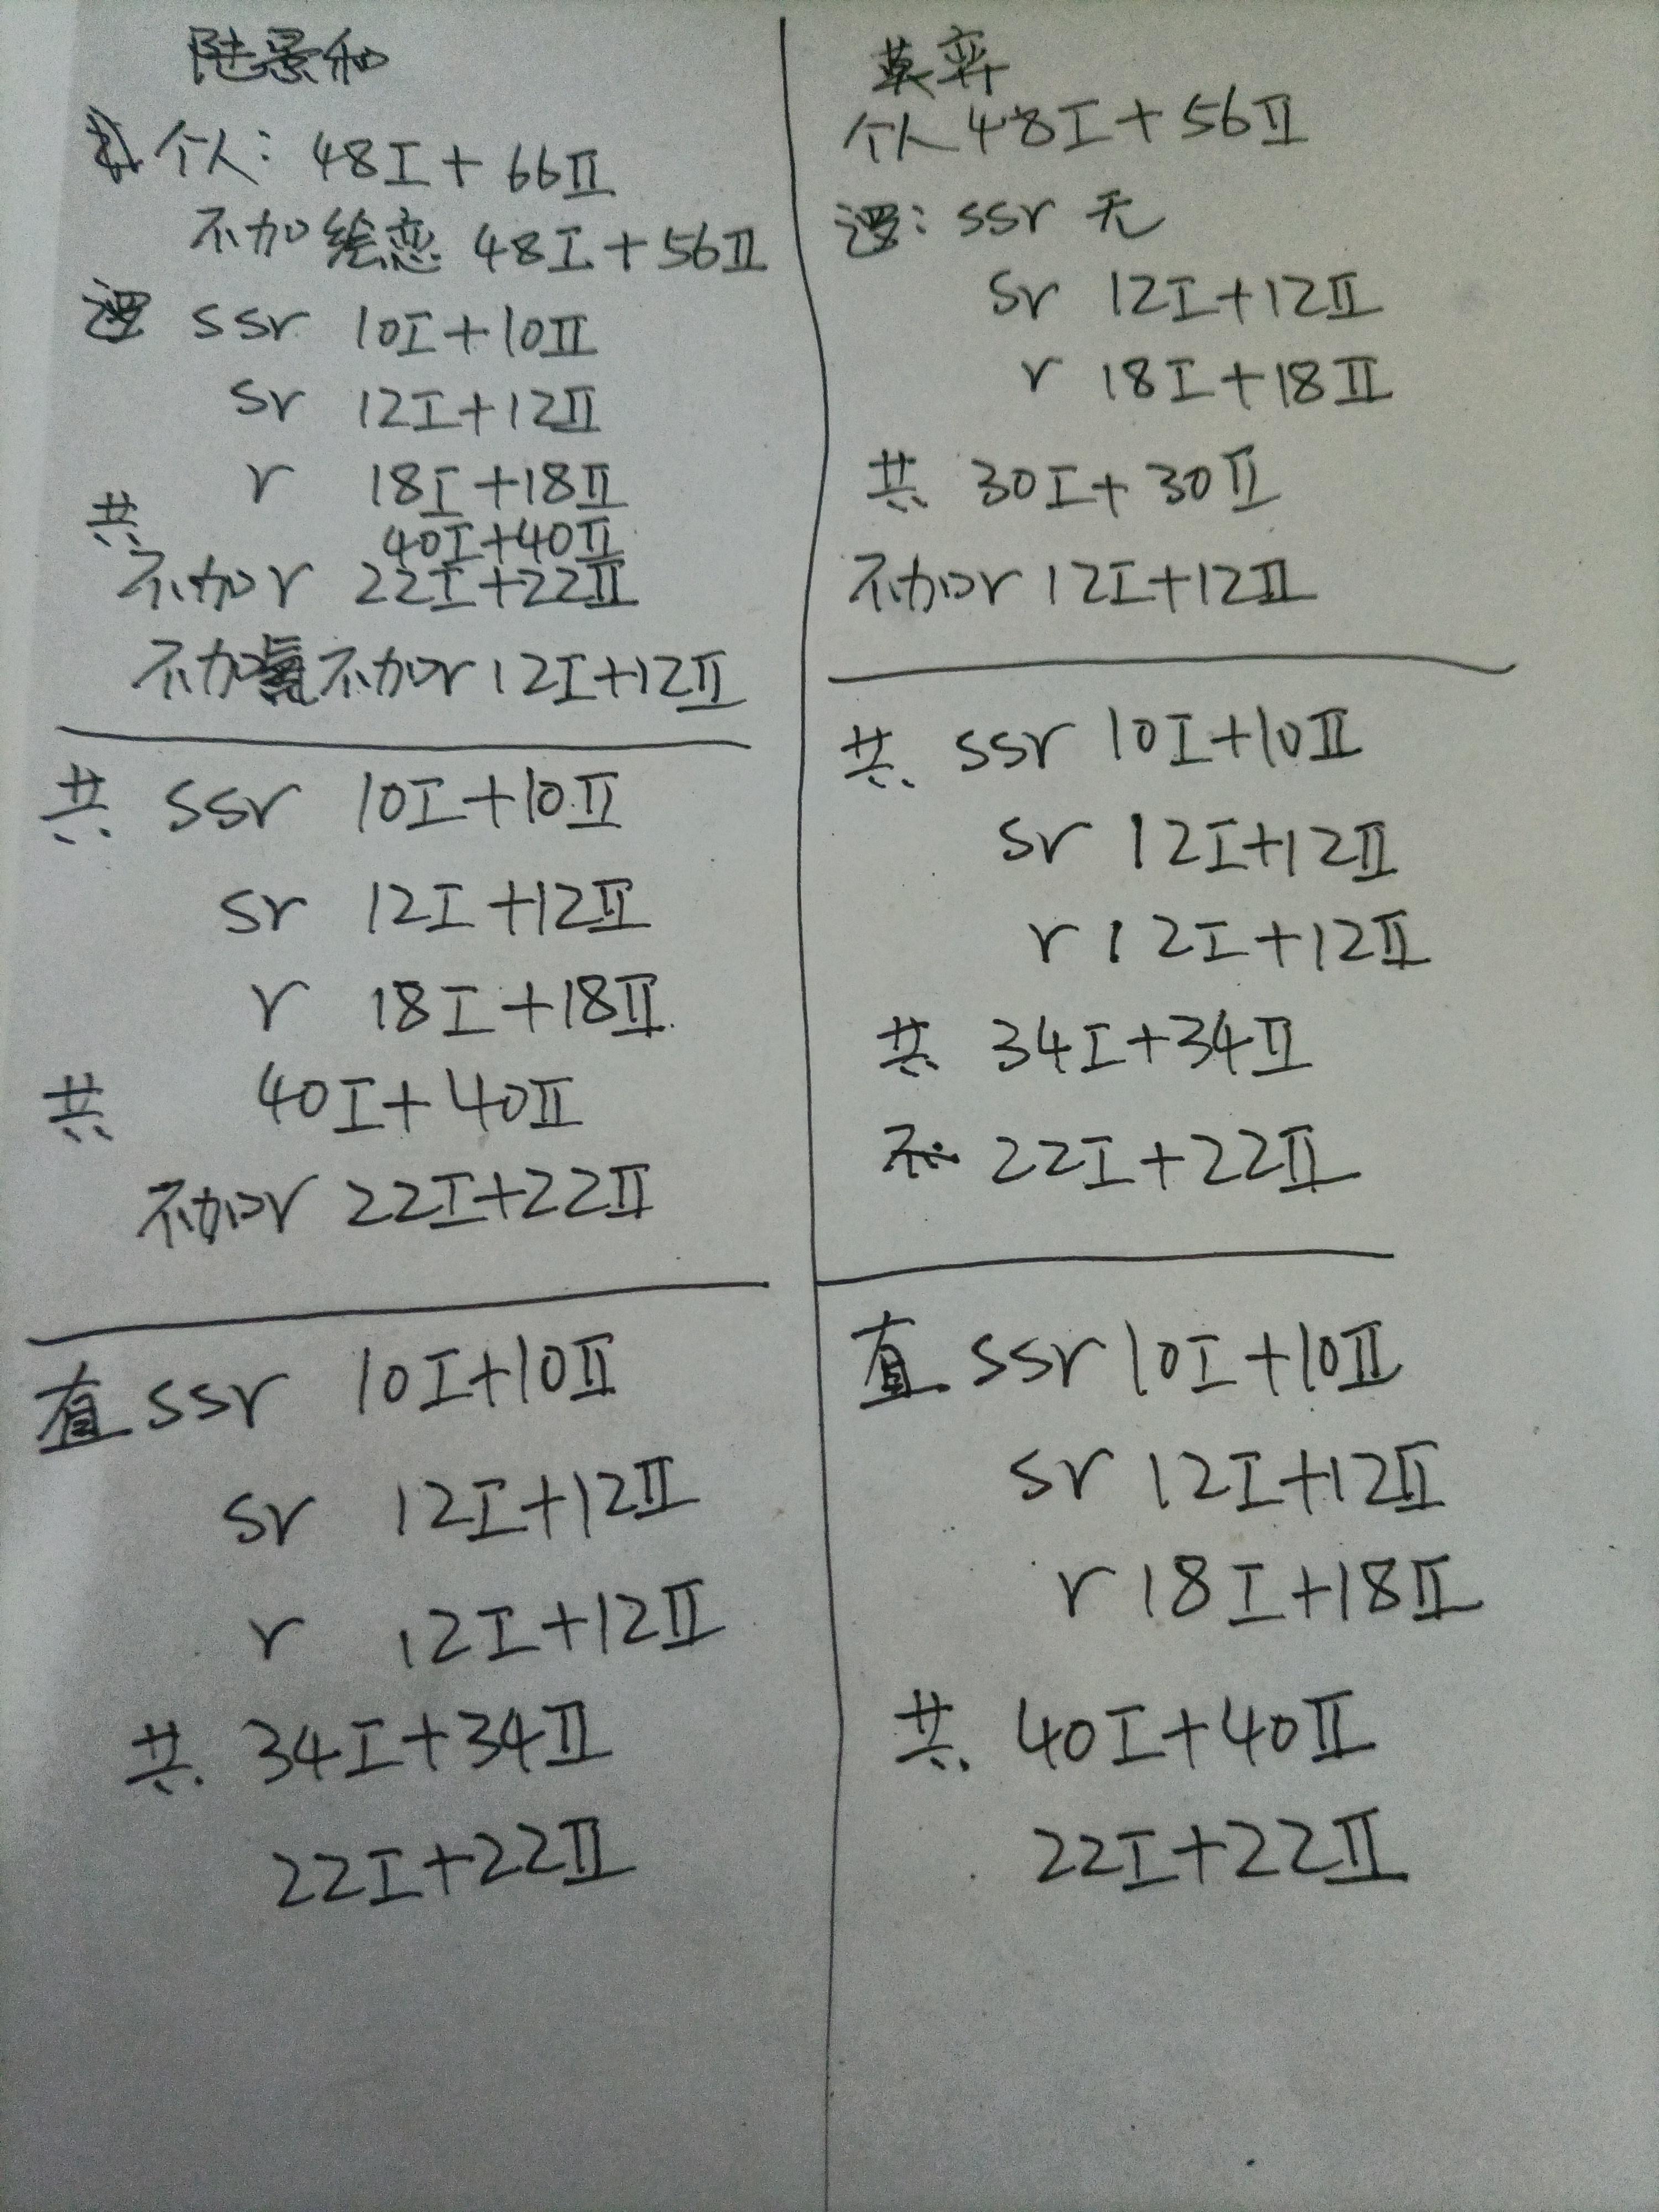 陆景和
个人：48Ⅰ+66Ⅱ
不加绘恋 48Ⅰ+56Ⅱ
逻 ssr 10Ⅰ+10Ⅱ
sr 12Ⅰ+12Ⅱ
r 18Ⅰ+18Ⅱ
共 40Ⅰ+40Ⅱ
不加r 22Ⅰ+22Ⅱ
不加 不加r 12Ⅰ+12Ⅱ
共 ssr 10Ⅰ+10Ⅱ
sr 12Ⅰ+12Ⅱ
r 18Ⅰ+18Ⅱ
共 40Ⅰ+40Ⅱ
不加r 22Ⅰ+22Ⅱ
直 ssr 10Ⅰ+10Ⅱ
sr 12Ⅰ+12Ⅱ
r 12Ⅰ+12Ⅱ
共 34Ⅰ+34Ⅱ
22Ⅰ+22Ⅱ
莫弈
个人 48Ⅰ+56Ⅱ
逻：ssr 无
sr 12Ⅰ+12Ⅱ
r 18Ⅰ+18Ⅱ
共 30Ⅰ+30Ⅱ
不加r 12Ⅰ+12Ⅱ
共 ssr 10Ⅰ+10Ⅱ
sr 12Ⅰ+12Ⅱ
r 12Ⅰ+12Ⅱ
共 34Ⅰ+34Ⅱ
不 22Ⅰ+22Ⅱ
直 ssr 10Ⅰ+10Ⅱ
sr 12Ⅰ+12Ⅱ
r 18Ⅰ+18Ⅱ
共 40Ⅰ+40Ⅱ
22Ⅰ+22Ⅱ